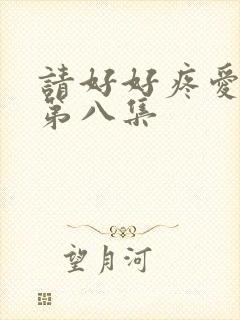 請好好疼愛
第八集
望月河